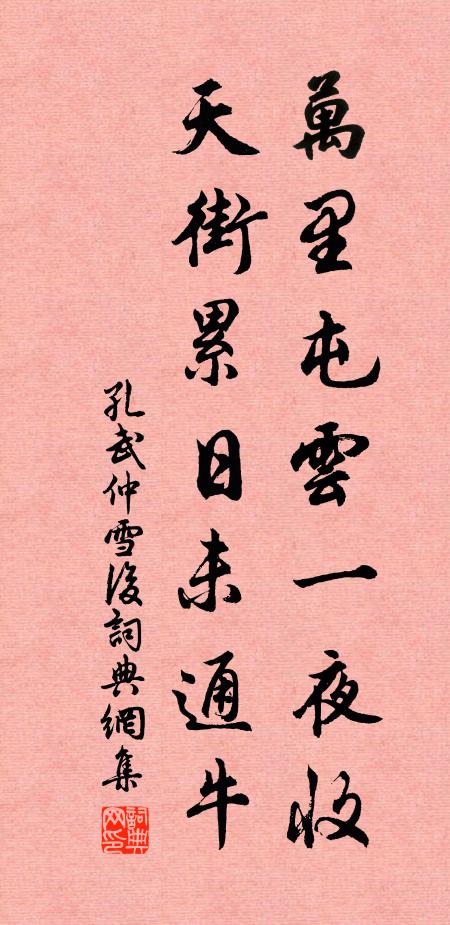 萬里屯雲一夜收
天街累日未通牛
孔武仲雪後詞典網集
詞典网印